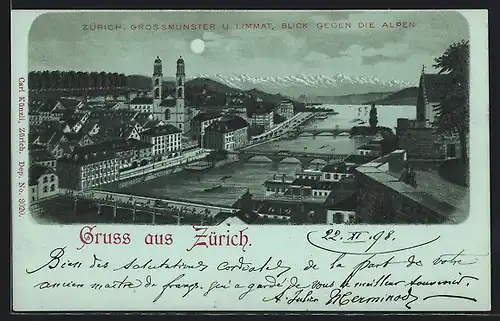 ZÜRICH, GROSSMÜNSTER U. LIMMAT, BLICK GEGEN DIE ALPEN
Carl Künzli, Zürich. Dep. No. 3020.
Gruss aus Zürich.
22. XI. 98.
Bien des salutations cordiales de la part de votre
ancien maître de franç. qui a gardé de vous le meilleur souvenir.
A. Julien Herminod